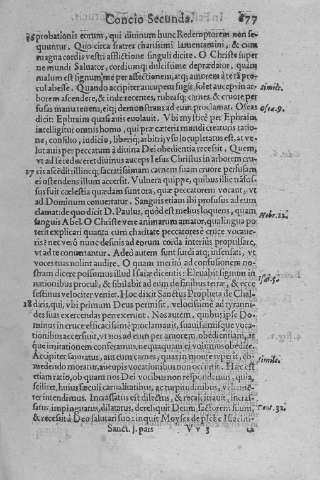 Concio Secunda. 677
reprobationis eorum, qui diuinum hunc Redemptorem non se-
quuntur. Quo circa fratres charissimi lamentamini, & cum
magna cordis vestri afflictione singuli dicite. O Christe super
me mundi Saluator, cordium dulcissime deprædator, quam
malum est lignum me per affectionem, atq; amorem à te tã pro-
cul abesse. Quando accipiter aucupem fugit, solet auceps in ar- simile.
borem ascendere, & inde recentes, rubeasq; carnes, & cruore per
fusas manu tenens, eiq; demonstrans ad eum proclamat. Oseas Osea. 9.
dicit: Ephraim quasi auis euolauit. Vbi mysticè per Ephraim
intelligitor omnis homo, qui præ cæteris mundi creaturis ratio-
ne, consilio, iudicio, liberoq; arbitrio
lutus per peccatum à diuina Dei obedientia recessit. Quem,
vt ad se reduceret diuinus auceps Iesus Christus in arborem cru-
17 cis ascendit illincq; sacratissimam carnem suam cruore perfusam
ei ostendens illum accersit. Vulnera quippe, quibus ille
sus fuit cœlestia quædam sunt ora, quæ peccatorem vocant, vt
ad Dominum conuertatur. Sanguis etiam ibi profusus ad eum
clamat: de quo dicit D. Paulus, quòd est melius loquens, quam
sanguis Abel. O Christe vere animarum amator, quo lingua po Hebr. 12.
terit explicari quanta cum charitate peccatores è cruce vocaue-
ris? nec verò nunc desinis ad eorum corda interius propulsare,
vt ad te conuertantur. Adeò autem sunt surdi atq; insensati, vt
voces tuas nolint audire. O quam inscitè ad confusionem no-
stram dicere possumus illud Isaiæ dicentis: Eleuabit signum in
nationibus procul, & sibilabit ad eum de finibus terræ, & ecce Isai. 5.
festinus velociter veniet. Hoc dicit Sanctus Propheta de Chal-
18 dæis, qui, vbi primùm Deus permisit, velocissimè ad tyranni-
des suas exercendas perrexerunt. Nos autem, quibus ipse Do-
minus in cruce efficacissimè proclamauit, suauissimisque voca-
tionibus accersiuit, vt nos ad eum per amorem, obedientiam, at-
que imitationem conferamus, nequaquam ei volumus obedire.
Accipiter saturatus, aut cum carnes, quas in monte reperit, co- simile.
medendo moratur, aucupis vocationibus non occurrit. Hæc est
etiam ratio, ob quam nos Dei vocibus non respondemus, quia,
scilicet, huius sæculi carnalitatibus, ac turpitudinibus, vehemen-
ter intendimus. Incrassatus est dilectus, & recalcitrauit, incras-
satus, impinguatus, dilatatus, dereliquit Deum factorem suum, Deut. 32.
& recessit à Deo salutari suo: inquit Moyses de plebe Israeliti-
Sanct. j. pars V v 3 ca